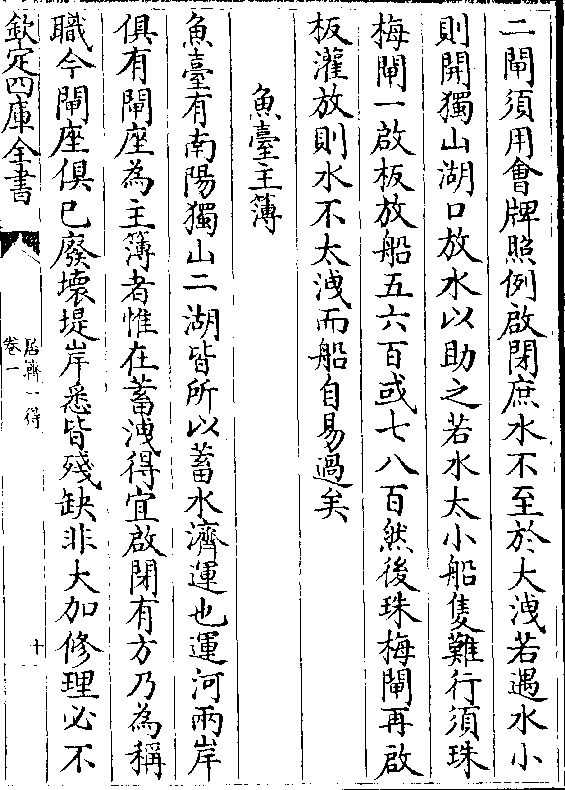 二閘須用會牌照例啟閉庶水不至於大洩若遇水小
則開獨山湖口放水以助之若水太小船隻難行須珠
梅閘一啟板放船五六百或七八百然後珠梅閘再啟
板灌放則水不太洩而船自易過矣
魚臺主簿
魚臺有南陽獨山二湖皆所以蓄水濟運也運河兩岸
俱有閘座為主簿者惟在蓄洩得宜啟閉有方乃為稱
職今閘座俱已廢壞堤岸悉皆殘缺非大加修理必不
欽定四庫全書
居濟一得
卷一
十